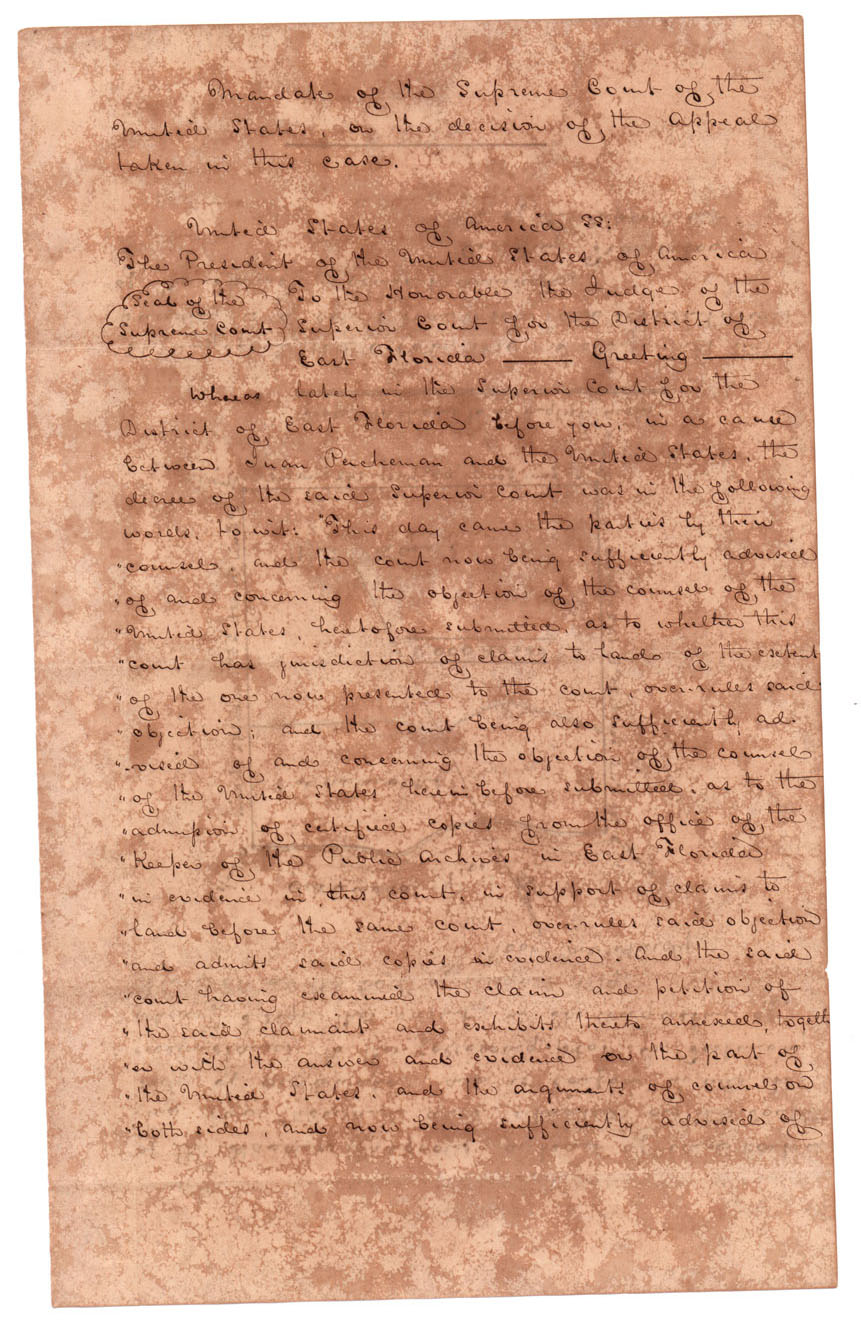 Mandate of the Supreme Court of the
United States, on the decision of the appeal
taken in this case.
United States of America SS:
The President of the United States of America
Seal of the
Supreme Court
To the Honorable the Judge of the
Superior Court for the District of
East Florida — Greeting —
Whereas lately in the Superior Court for the
District of East Florida before you, in a cause
between Juan Percheman and the United States, the
decree of the said Superior Court was in the following
words, to wit: "This day came the parties by their
"counsel, and the court now being sufficiently advised
"of and concerning the objection of the counsel of the
"United States, heretofore submitted, as to whether this
"court has jurisdiction of claims to lands of the extent
"of the one now presented to the court, over-rules said
"objection; and the court being also sufficiently ad-
"-vised of and concerning the objection of the counsel
"of the United States herein before submitted, as to the
"admission of certified copies from the office of the
"Keeper of the Public Archives in East Florida
"in evidence in this court, in support of claims to
"land before the same court, over-rules said objection
"and admits said copies in evidence. And the said
"court having examined the claim and petition of
"the said claimant and exhibits thereto annexed, togeth
"er with the answer and evidence on the part of
"the United States, and the arguments of counsel on
"both sides, and now being sufficiently advised of